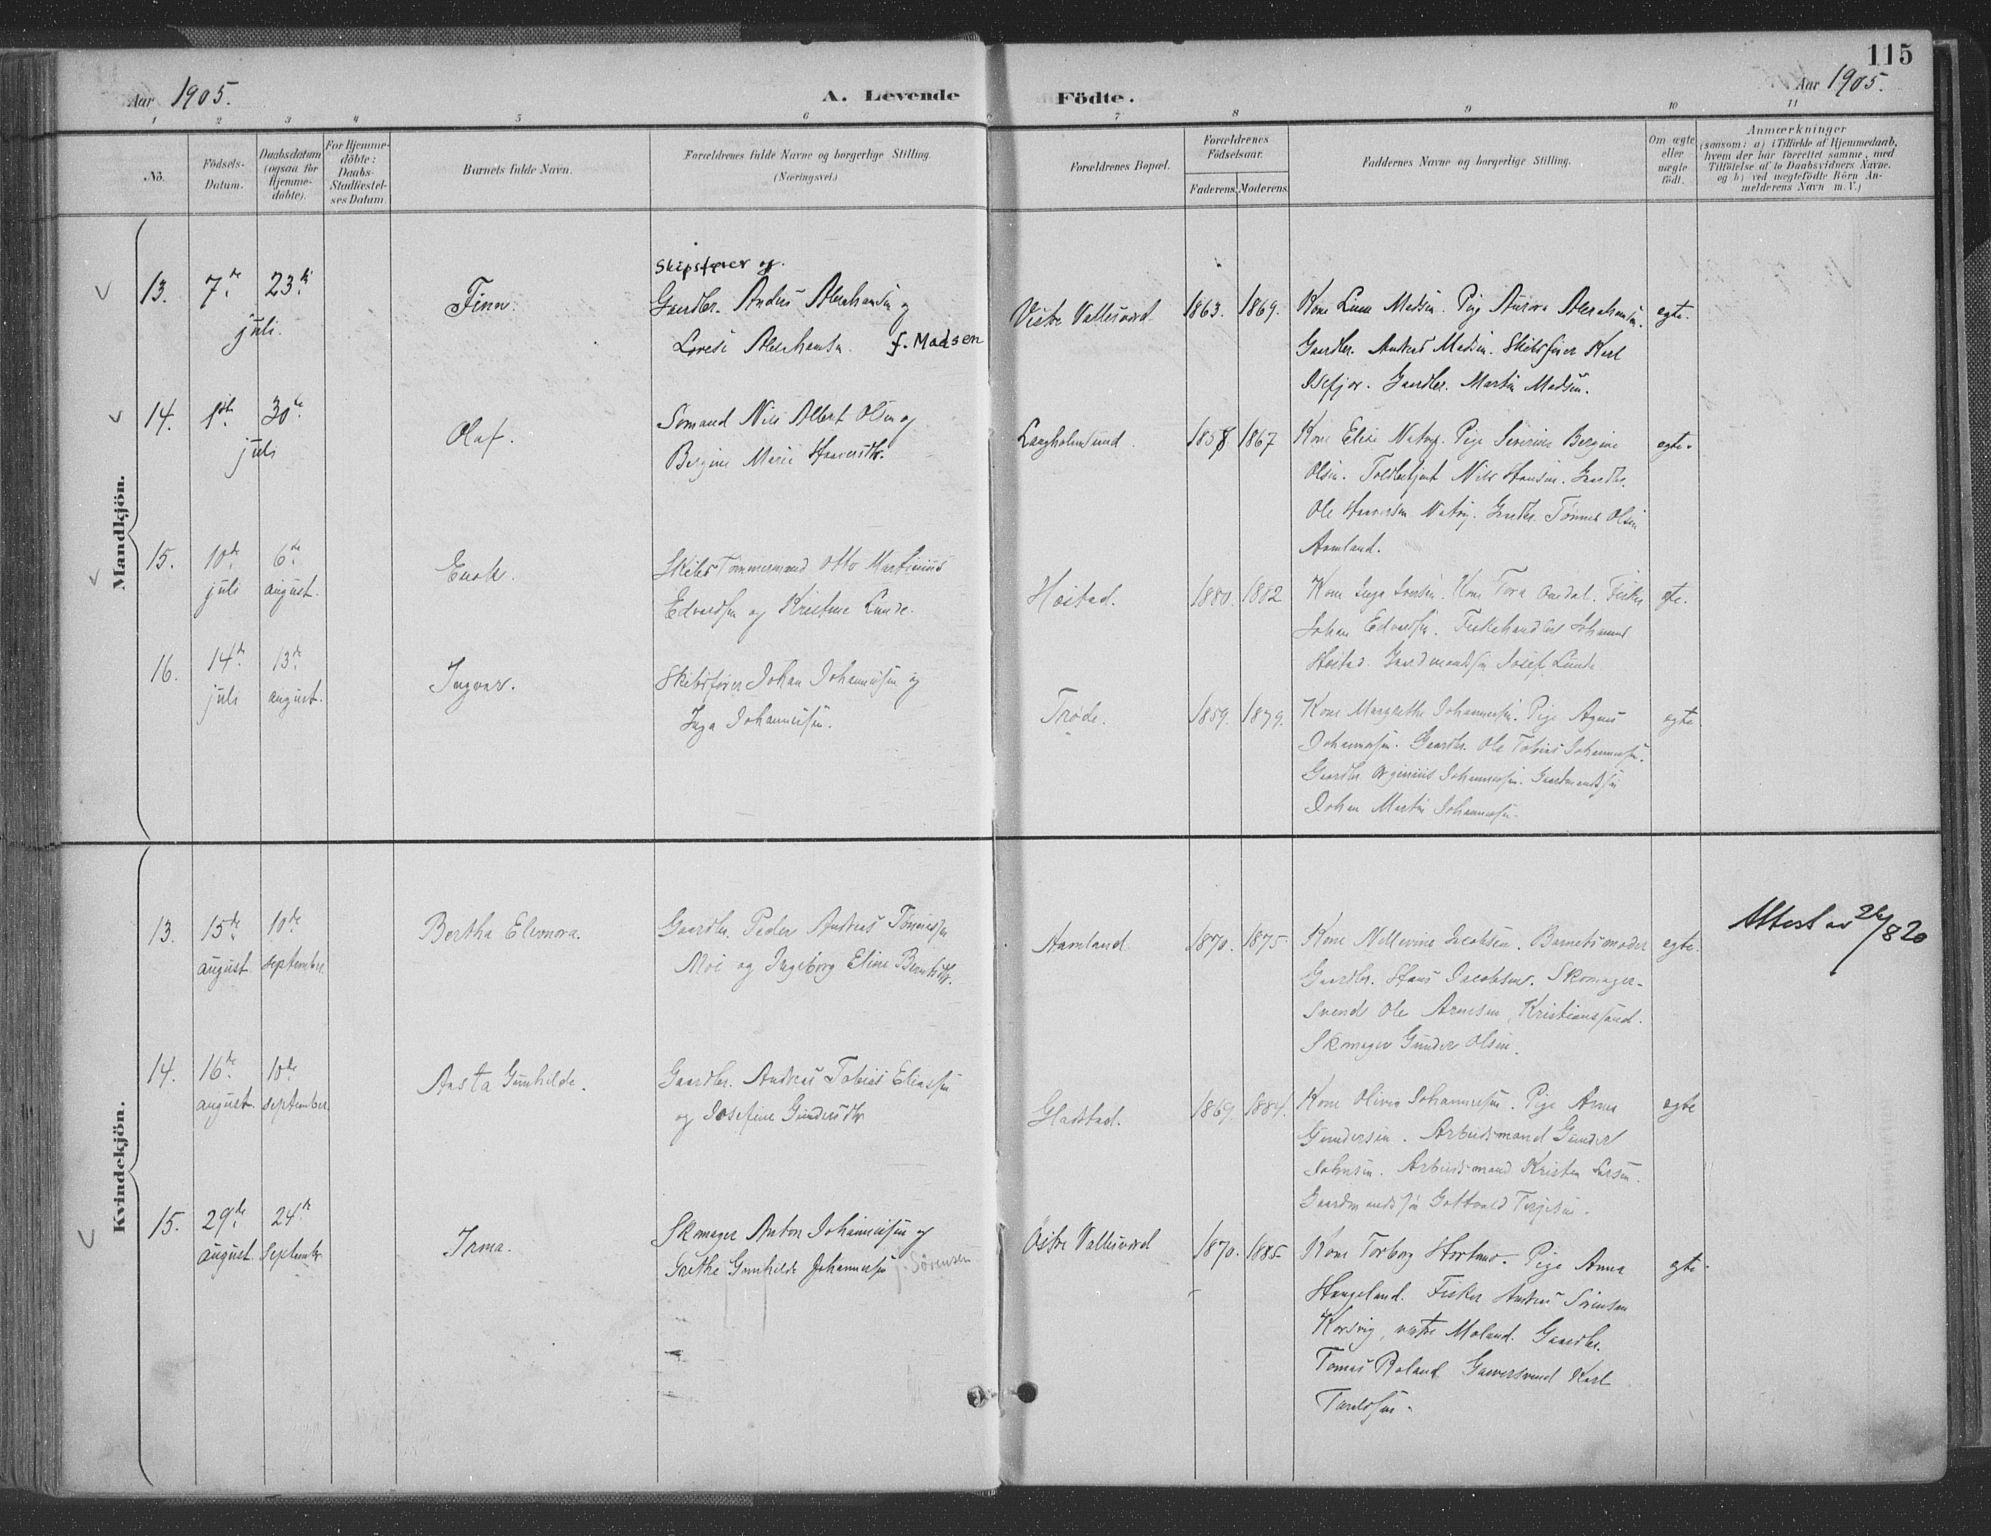 115
Aar 1905.
A. Levende
Födte.
Aar 1905.
1 2 3 4 5 6 7 8 9 10 11
No.
Födsels-
Datum.
Daabsdatum
(ogsaa for
Hjemme-
döbte).
For Hjemme-
döbte:
Daabs-
Stadfæstel-
ses Datum.
Barnets fulde Navn.
Forældrenes fulde Navne og borgerlige Stilling.
(Næringsvei.)
Forældrenes Bopæl.
Forældrenes
Födselsaar.
Faderens. Moderens.
Faddernes Navne og borgerlige Stilling.
Om ægte
eller
uægte
födt.
Anmærkninger
(saasom: a) i Tilfælde af Hjemmedaab,
hvem der har forrettet samme, med
Tilföielse af to Daabsvidners Navne,
og b) ved uægtefödte Börn An-
melderens Navn m. V.)
Mandkjön.
13. 7de 23de
juli.
Finn.
Skipsfører og
Gaardbr. Anders Abrahamsen og
Lovise Abrahamsen. f. Madsen
Vestre Vallesværd 1863. 1869.
Kone Lina Madsen. Pige Aurora Abrahamsen.
Gaardbr. Andreas Madsen. Skibsfører Karl
Isefjær. Gaardbr. Martin Madsen.
egte.
14. 1ste 30te
juli
Olaf.
Sømand Nils Albert Olsen og
Bergine Marie Haaversdtr.
Langholmsund. 1858 1867
Kone Elise Natvig. Pige Severine Bergine
Olsen. Toldbetjent Nils Hansen. Gaardbr.
Ole Haaversen Natvig. Gaardbr. Tønnes Olsen
Aamland.
egte.
15. 10de 6te
juli august.
Enok.
Skibstømmermand Otto Martinius
Edvardsen og Kristine Lunde.
Høistad. 1880. 1882
Kone Inga Iversen. Kone Tora Omdal. Fisker
Johan Edvardsen. Fiskehandler Johannes
Høistad. Gaardmandssøn Josef Lunde
egte.
16. 14de 13de
juli august.
Ingvar.
Skibsfører Johan Johannesen og
Inga Johannesen.
Trøde. 1859. 1879.
Kone Margrethe Johannesen. Pige Agnes
Johannesen. Gaardbr. Ole Tobias Johannesen.
Gaardbr. Johannesen. Gaardmandssøn
Johan Martin Johannesen.
egte.
Kvindekjön.
13. 15de 10de
august september
Bertha Eleonora.
Gaardbr. Peder Andreas Tønnesen
Moi og Ingeborg Eline Berntsdtr.
Aamland. 1870. 1875.
Kone Nellevine Jacobsen. Barnets moder
Gaardbr. Hans Jacobsen. Skomager-
svend Ole Arnesen, Kristianssand.
Skomager Gunder Olsen.
egte.
Attest av 26/8 20
14. 16de 10de
august. september.
Aasta Gunhilde.
Gaardbr. Andreas Tobias Eliassen
og Josefine Gundersdtr.
Gladstad. 1869. 1884.
Kone Olivia Johannesen. Pige Anna
Gundersen. Arbeidsmand Gunder
Johnsen. Arbeidsmand Kristen Larsen.
Gaardmandssøn Gottvald Terjesen.
egte
15. 29de 24de
august. September
Irma.
Skomager Anton Johannesen og
Grethe Gunhilde Johannesen f. Sørensen
Østre Vallesværd 1870. 1885.
Kone Torborg Hortano. Pige Anna
Haugeland. Fisker Andreas Sørensen
Korsvig, vestre Moland. Gaardbr.
Tomas Roland. Garversvend Karl
egte.